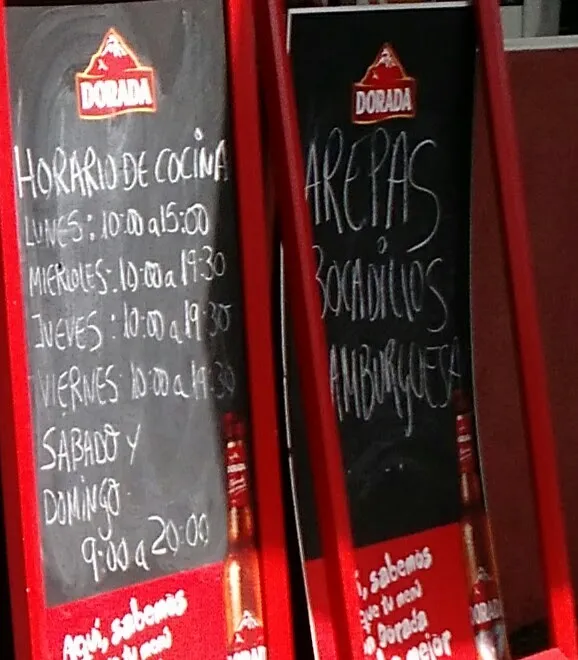 DORADA
HORARIO DE COCINA
LUNES: 10:00 a 15:00
MIERCOLES: 10:00 a 19:30
JUEVES: 10:00 a 19:30
VIERNES: 10:00 a 19:30
SABADO Y
DOMINGO
9:00 a 20:00
Aquí, sabemos
que tu menú
DORADA
DORADA
AREPAS
BOCADILLOS
AMBURGUESA
, sabemos
que tu menú
Dorada
mejor
DORADA